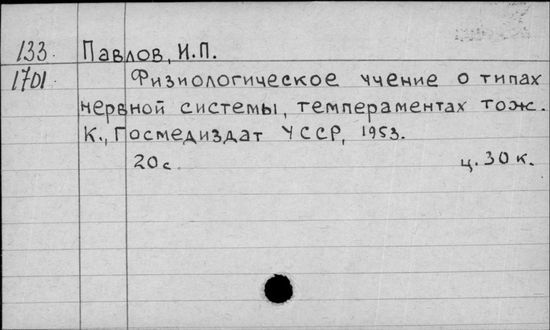 133. Павлов, И.П.
1701 Физиологическое учение о типах
нервной системы, темпераментах тож.
К., Госмедиздат УССР, 1953.
20 с. ц. 30 к.